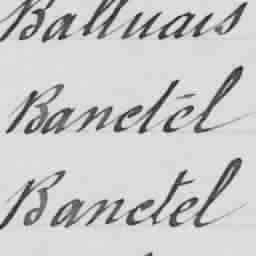 Balluais
Banctel
Banctel